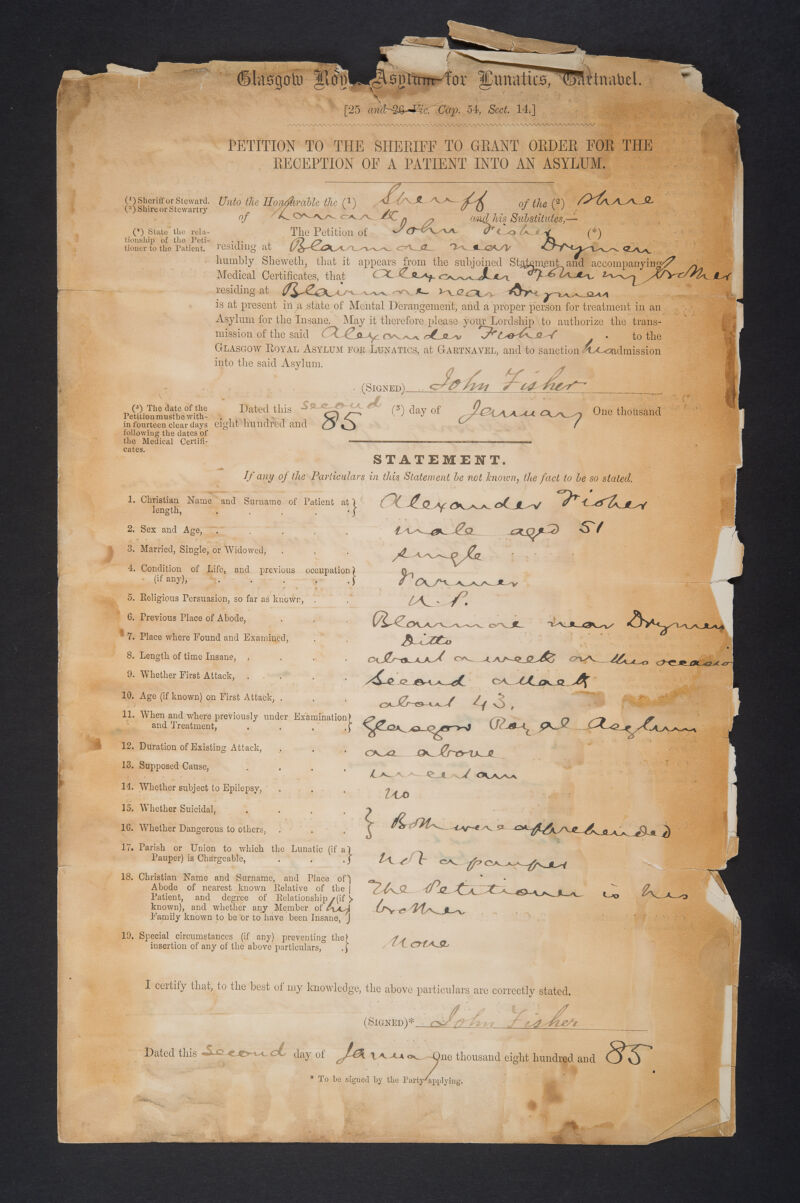 Glasgow Royal Asylum for Lunatics, Gartnavel.
[25 and 26 Vic. Cap. 54, Sect. 14.]
PETITION TO THE SHERIFF TO GRANT ORDER FOR THE
RECEPTION OF A PATIENT INTO AN ASYLUM.
(¹) Sheriff or Steward.
(²) Shire or Stewartry
Unto the Honourable the (¹) Sheriff of the (²) Shire
of Lanark and his Substitutes,—
(³) State the rela-
tionship of the Peti-
tioner to the Patient.
The Petition of John Fisher (³)
residing at Blairmore near Drymen
humbly Sheweth, that it appears from the subjoined Statement and accompanying
Medical Certificates, that Alexander Fisher my brother
residing at Blairmore near Drymen
is at present in a state of Mental Derangement, and a proper person for treatment in an
Asylum for the Insane. May it therefore please your Lordship to authorize the trans-
mission of the said Alexander Fisher to the
GLASGOW ROYAL ASYLUM FOR LUNATICS, at GARTNAVEL, and to sanction his admission
into the said Asylum.
(SIGNED) John Fisher
(³) The date of the
Petition must be with-
in fourteen clear days
following the dates of
the Medical Certifi-
cates.
Dated this Second (³) day of January One thousand
eight hundred and 85
STATEMENT.
If any of the Particulars in this Statement be not known, the fact to be so stated.
1. Christian Name and Surname of Patient at
length, Alexander Fisher
2. Sex and Age, male aged 51
3. Married, Single, or Widowed, single
4. Condition of Life, and previous occupation
(if any), Farmer
5. Religious Persuasion, so far as known, U. P.
6. Previous Place of Abode, Blairmore near Drymen
7. Place where Found and Examined, Ditto
8. Length of time Insane, about a week on this occasion
9. Whether First Attack, Second attack
10. Age (if known) on First Attack, about 43.
11. When and where previously under Examination
and Treatment, Glasgow Royal Asylum
12. Duration of Existing Attack, as above
13. Supposed Cause, uncertain
14. Whether subject to Epilepsy, no
15. Whether Suicidal,
16. Whether Dangerous to others, } Both were apprehended
17. Parish or Union to which the Lunatic (if a
Pauper) is Chargeable, not a pauper
18. Christian Name and Surname, and Place of
Abode of nearest known Relative of the
Patient, and degree of Relationship (if
known), and whether any Member of his
Family known to be or to have been Insane,
The Petitioner is his
brother
19. Special circumstances (if any) preventing the
insertion of any of the above particulars, None
I certify that, to the best of my knowledge, the above particulars are correctly stated.
(SIGNED)* John Fisher
Dated this Second day of January One thousand eight hundred and 85
* To be signed by the Party applying.